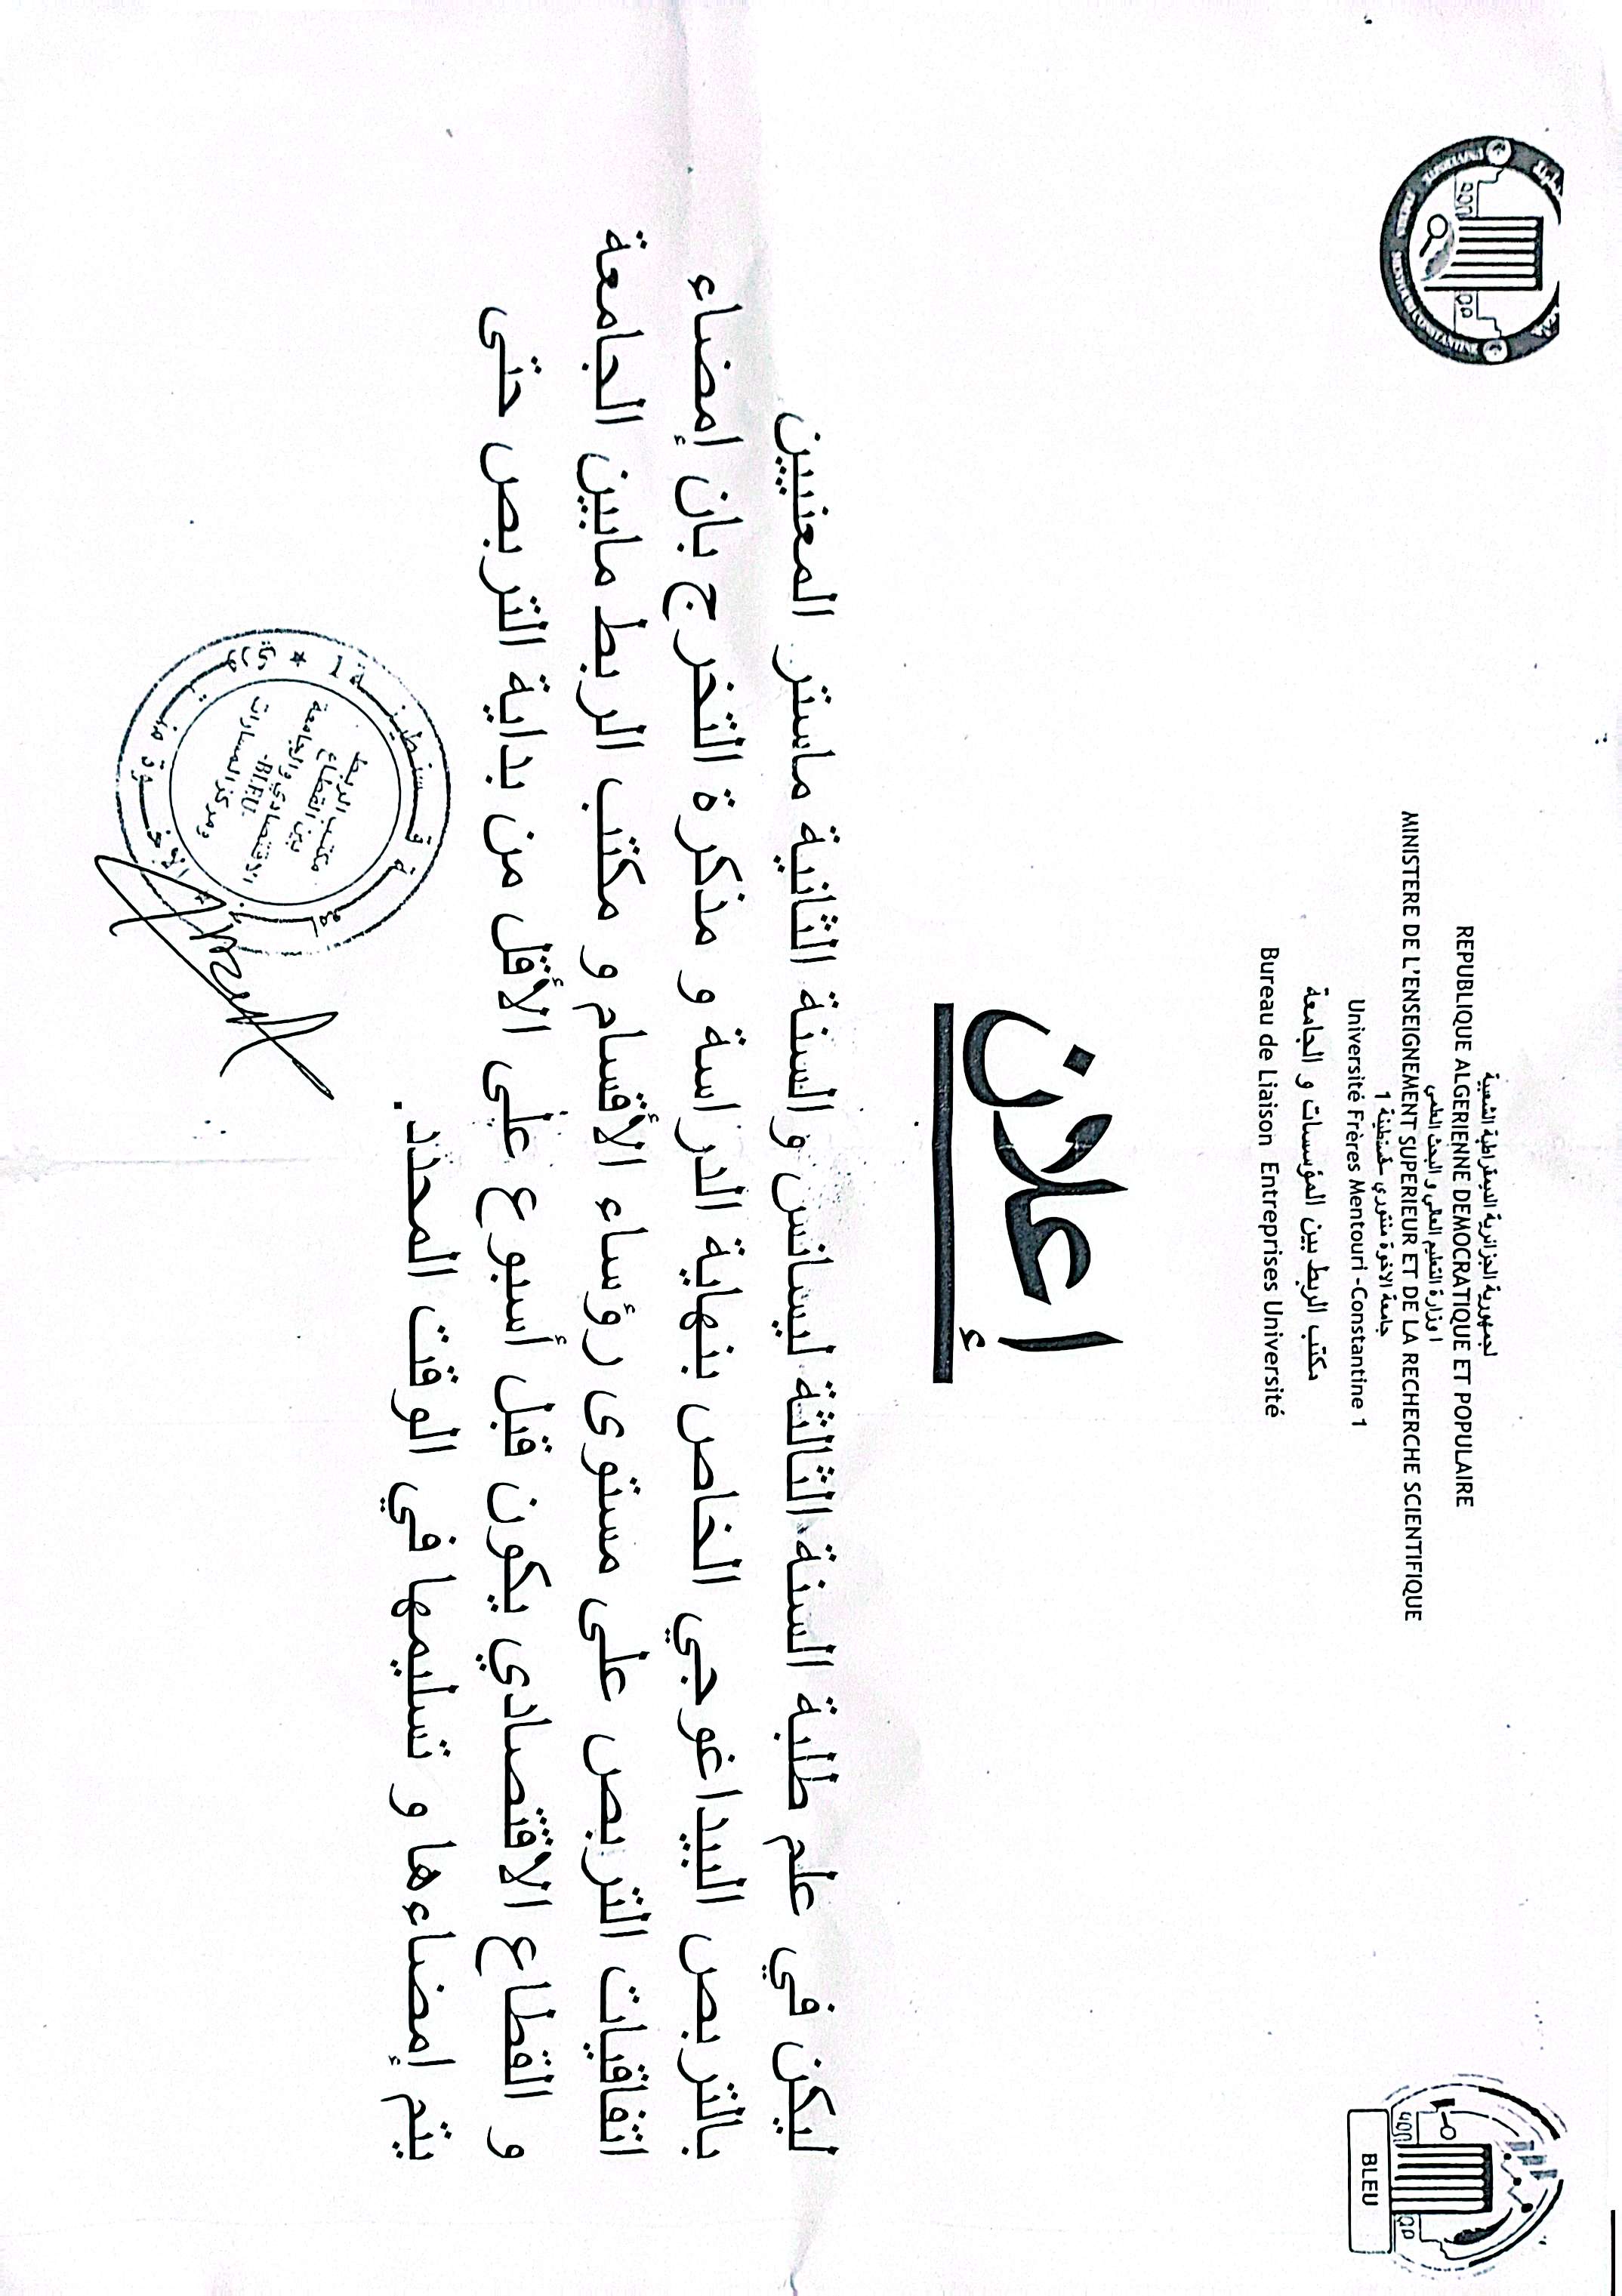 لجمهورية الجزائرية الديمقراطية الشعبية
REPUBLIQUE ALGERIENNE DEMOCRATIQUE ET POPULAIRE
وزارة التعليم العالي و البحث العلمي
MINISTERE DE L'ENSEIGNEMENT SUPERIEUR ET DE LA RECHERCHE SCIENTIFIQUE
جامعة الاخوة منتوري قسنطينة 1
Université Frères Mentouri -Constantine 1
مكتب الربط بين المؤسسات و الجامعة
Bureau de Liaison Entreprises Université
BLEU
إعلان
ليكن في علم طلبة السنة الثالثة ليسانس و السنة الثانية ماستر المعنيين
بالتربص البيداغوجي الخاص بنهاية الدراسة و مذكرة التخرج بان إمضاء
اتفاقيات التربص على مستوى رؤساء الأقسام و مكتب الربط مابين الجامعة
و القطاع الاقتصادي يكون قبل أسبوع على الأقل من بداية التربص حتى
يتم إمضاءها و تسليمها في الوقت المحدد.
مكتب الربط
بين القطاع
الاقتصادي والجامعة
BLEU
ومركز المسارات